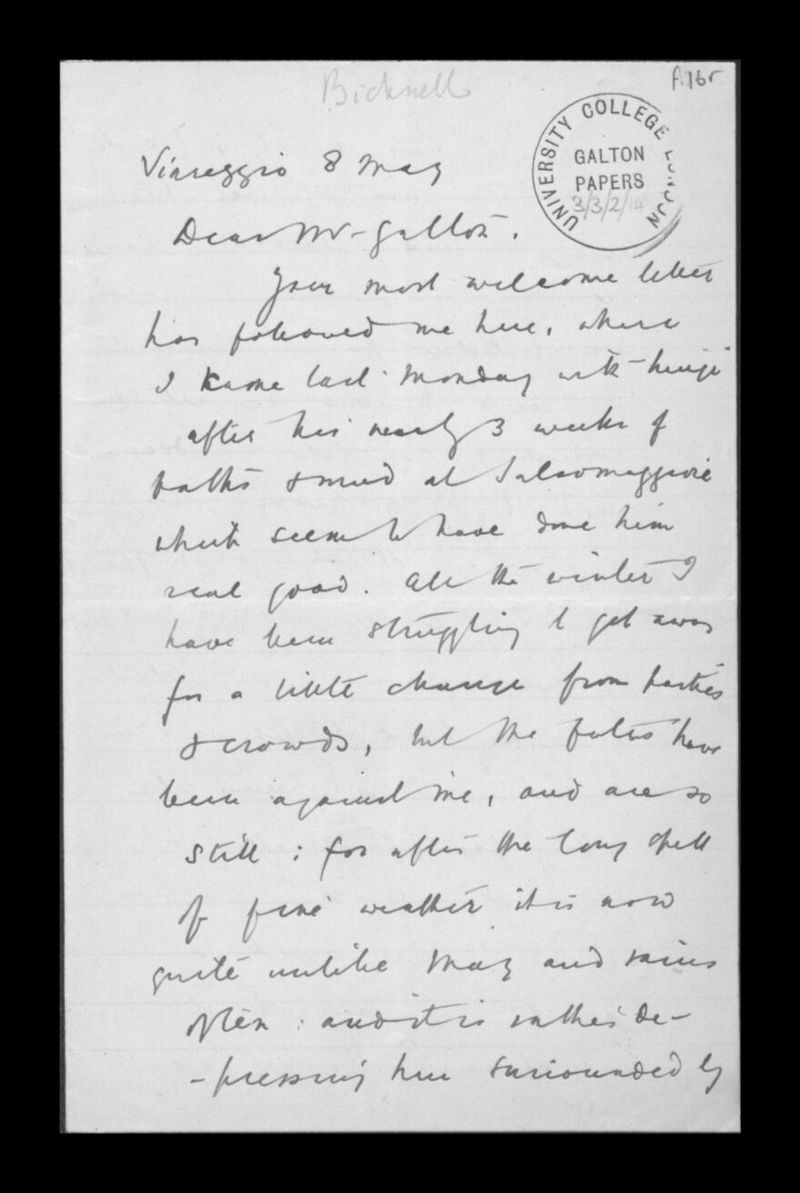 Bicknell
f.16r
UNIVERSITY COLLEGE LONDON
GALTON
PAPERS
3/3/2/14
Viareggio 8 May
Dear Mr Galton.
Your most welcome letter
has followed me here, where
I came last Monday with Luigi
after his nearly 3 weeks of
baths & mud at Salsomaggiore
which seem to have done him
real good. All the winter I
have been struggling to get away
for a little change from parties
& crowds, but the fates have
been against me, and are so
still : for after the long spell
of fine weather it is now
quite unlike May and rains
often : and it is rather de-
-pressing here surrounded by